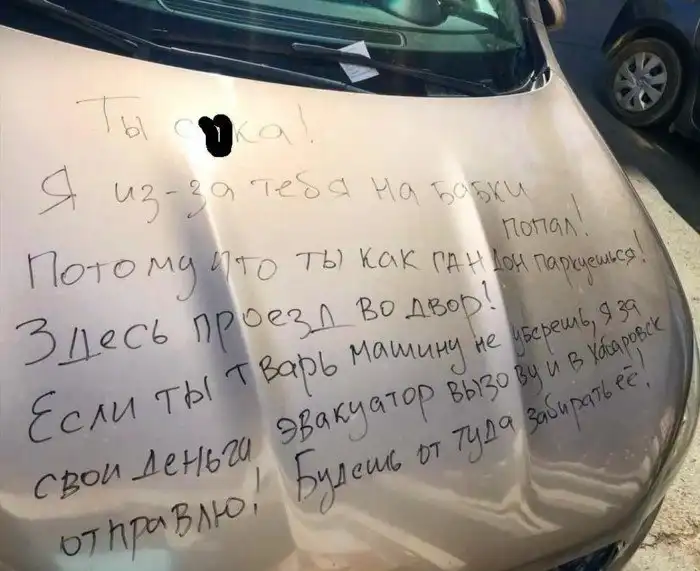 Ты с ка!
Я из-за тебя на бабки
попал!
Потому что ты как гандон паркуешься!
Здесь проезд во двор!
Если ты тварь машину не уберешь, я за
свои деньги эвакуатор вызову и в Хабаровск
отправлю! Будешь от туда забирать её!